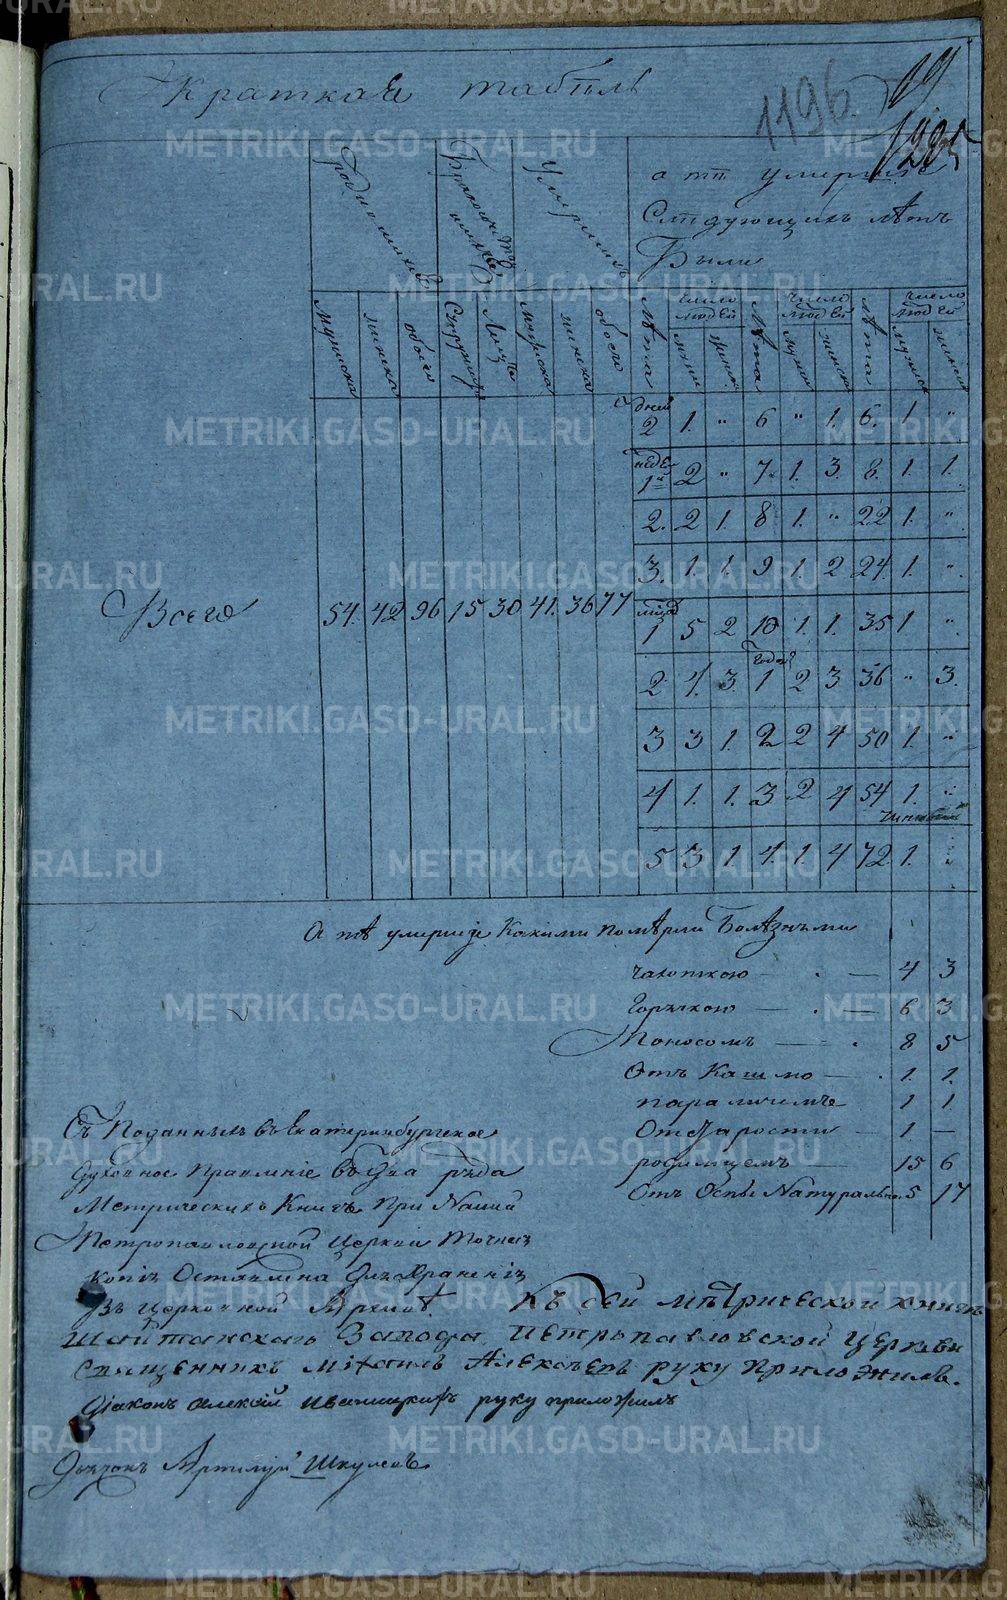 Краткая табель
1196.
19
1205
Родившихся
Умершихъ
а тѣ умершіе
Слѣдующихъ лѣтъ
Были
мужеска
женска
обоего
Супружествъ
Лицъ
мужеска
женска
обоего
Лѣта
число людей
мужес
женск
Лѣта
число людей
мужес
женск
лѣта
число людей
мужес
женск
дней 2 1. " 6 " 1. 6. 1. "
недел 1я 2 " 7. 1. 3. 8. 1. 1.
2. 2 1. 8 1. " 22 1. "
3. 1. 1. 9 1. 2 24. 1. "
Всего 54. 42 96 15 30 41. 36 77
мцъ 1 5 2 10 1. 1. 35 1 "
2 4. 3. года 1 2 3 36 " 3.
3 3 1. 2 2 4 50 1. "
4 1. 1. 3 2 4 54 1. "
5 3 1. 4. 1. 4 72 1.
А тѣ умершіе Какими помѣрли Болѣзнями
чахоткою — 4 3
Горячкою — 6 3
Поносомъ — 8 5
Отъ Кашлю — 1. 1.
параличемъ 1 1
Отъ старости — 1 —
родимцемъ — 15 6
Отъ Оспы Натуральной 5 17
Съ Поданныхъ въ Екатеринбургское
Духовное Правленіе въ два ряда
Метрическихъ Книгъ При Нашей
Петропавловской Церкви точная
копія Оставлена для Храненія
Въ Церковной Архивѣ
Къ сей мѣтрической книгѣ
Шайтанскаго Завода Петрьпавловской Церкви
Священникъ Михаилъ Алексѣевъ руку приложилъ.
Діаконъ Алексѣй руку приложилъ
Дьячокъ Шкулевъ
METRIKI.GASO-URAL.RU